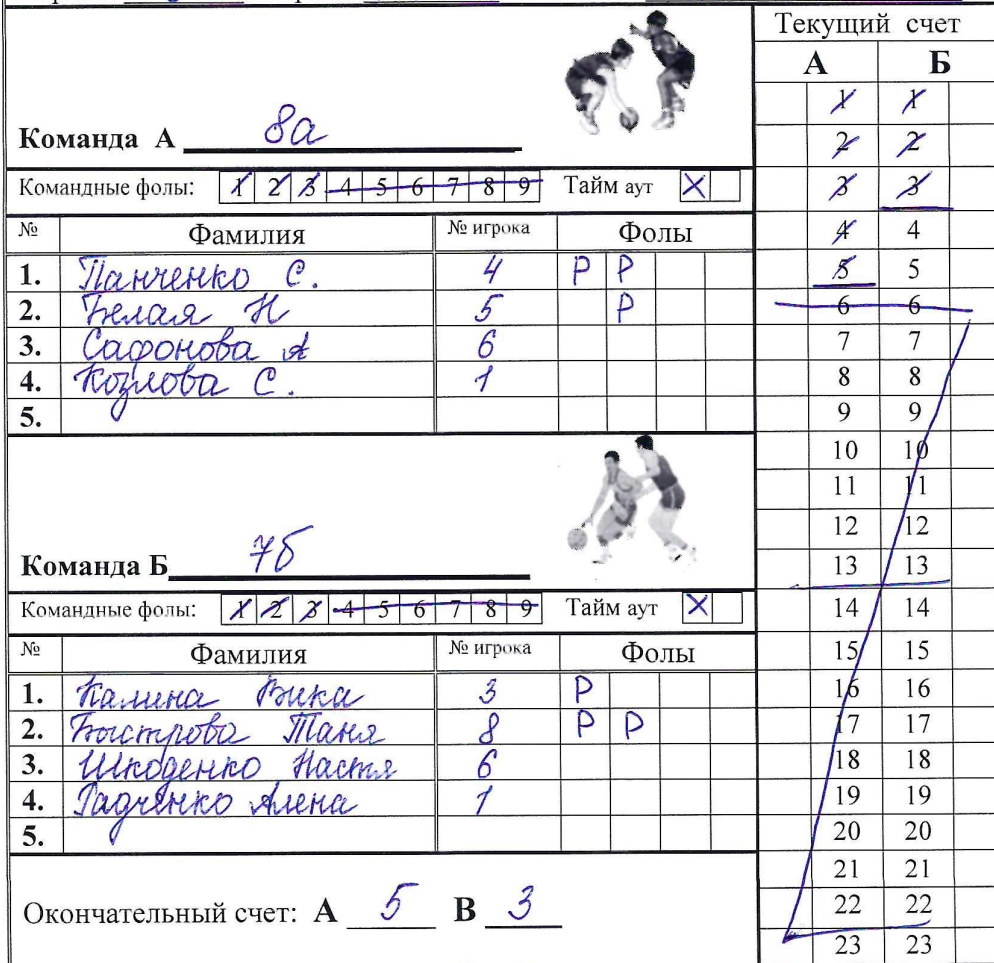 Текущий счет
А Б
Команда А 8а
Командные фолы: 1 2 3 4 5 6 7 8 9 Тайм аут X
№ Фамилия № игрока Фолы
1. Панченко С. 4 Р Р
2. Белая Н 5 Р
3. Сафонова А 6
4. Козлова С. 1
5.
Команда Б 7б
Командные фолы: 1 2 3 4 5 6 7 8 9 Тайм аут X
№ Фамилия № игрока Фолы
1. Калина Вика 3 Р
2. Быстрова Таня 8 Р Р
3. Шкоденко Настя 6
4. Радченко Алена 1
5.
Окончательный счет: А 5 В 3
1 1
2 2
3 3
4 4
5 5
6 6
7 7
8 8
9 9
10 10
11 11
12 12
13 13
14 14
15 15
16 16
17 17
18 18
19 19
20 20
21 21
22 22
23 23